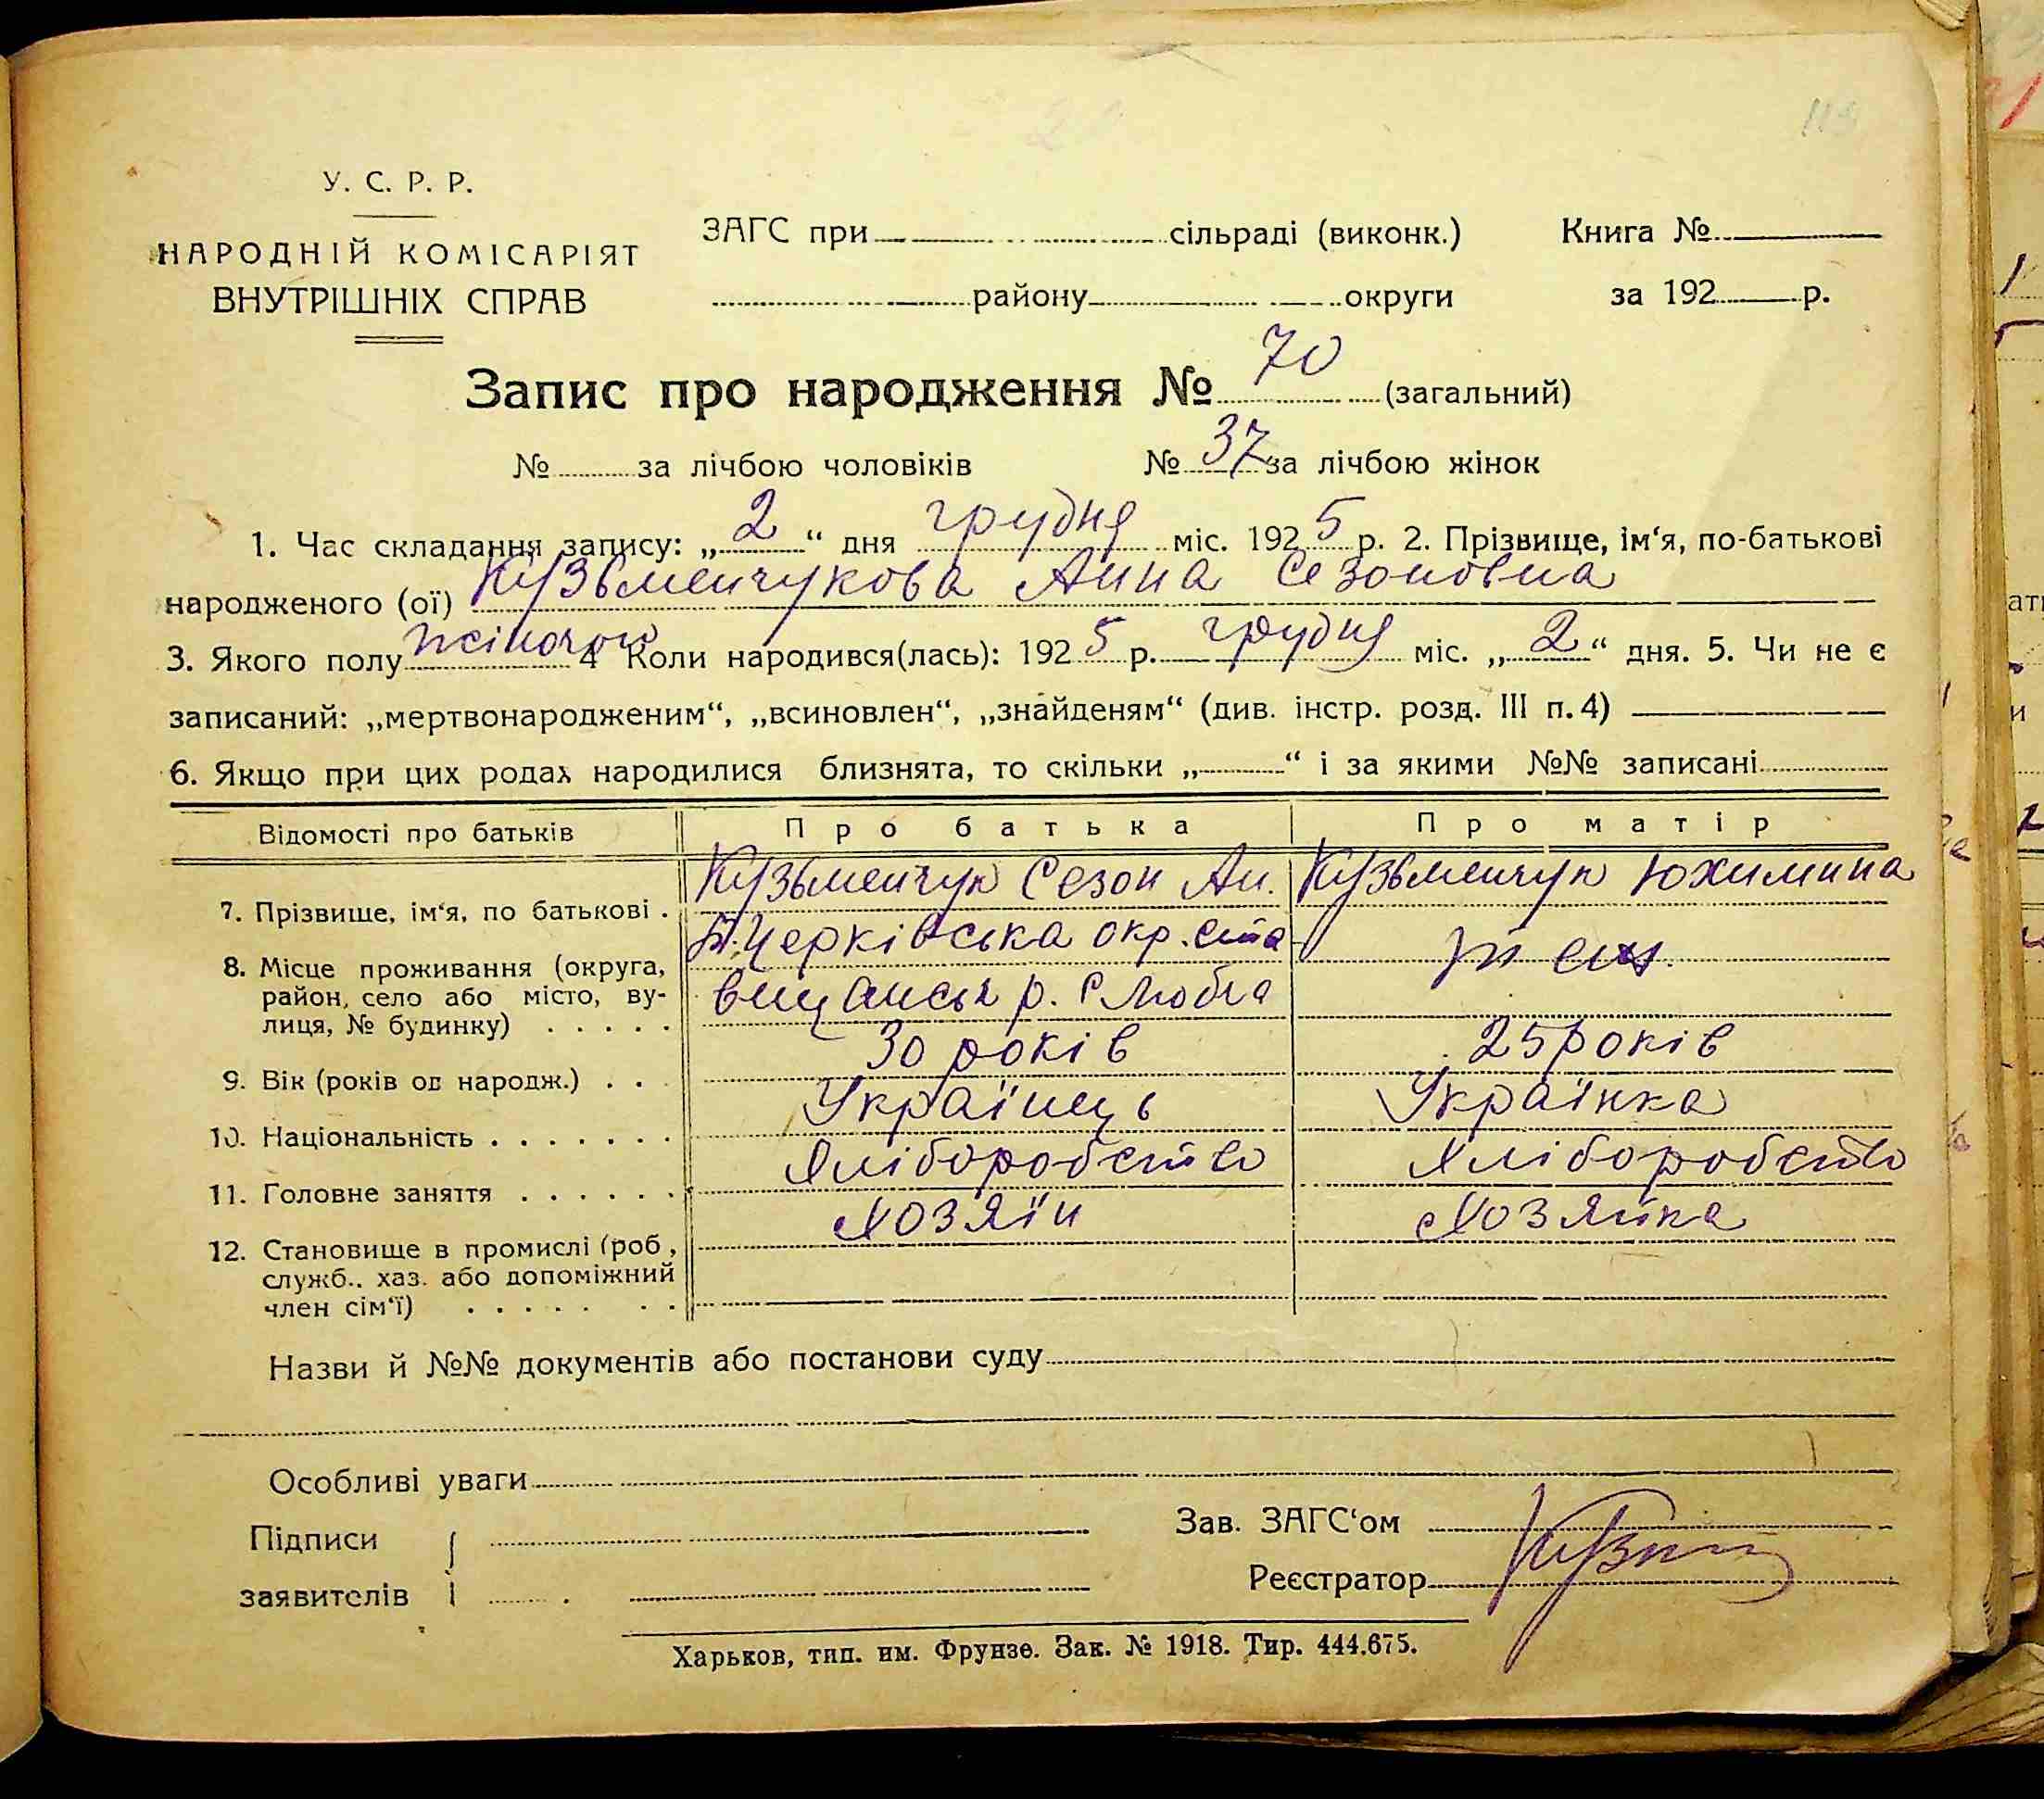 У. С. Р. Р.
НАРОДНІЙ КОМІСАРІЯТ
ВНУТРІШНІХ СПРАВ
ЗАГС при сільраді (виконк.)
Книга №
району округи
за 192 р.
Запис про народження № 70 (загальний)
№ за лічбою чоловіків № 37 за лічбою жінок
1. Час складання запису: „ 2 “ дня грудня міс. 192 5 р. 2. Прізвище, ім‘я, по-батькові
народженого (ої) Кузьменчукова Анна Сезоновна
3. Якого полу жіночок 4 Коли народився(лась): 192 5 р. грудня міс. „ 2 “ дня. 5. Чи не є
записаний: „мертвонародженим“, „всиновлен“, „знайденям“ (див. інстр. розд. III п. 4)
6. Якщо при цих родах народилися близнята, то скільки „ “ і за якими №№ записані
Відомості про батьків Про батька Про матір
7. Прізвище, ім‘я, по батькові . Кузьменчук Сезон Ан. Кузьменчук Юхимина
8. Місце проживання (округа, район, село або місто, вулиця, № будинку) . . . . . Б.Церківська окр. Ста
вищанськ р. с Любча
9. Вік (років од народж.) . . . 30 років 25 років
10. Національність . . . . . . . Українець Українка
11. Головне заняття . . . . . . Хліборобство Хліборобство
12. Становище в промислі (роб, служб., хаз. або допоміжний член сім‘ї) . . . . . . . Хозяїн Хозяйка
Назви й №№ документів або постанови суду
Особливі уваги
Підписи
заявителів
Зав. ЗАГС‘ом
Реєстратор
Харьков, тип. им. Фрунзе. Зак. № 1918. Тир. 444.675.